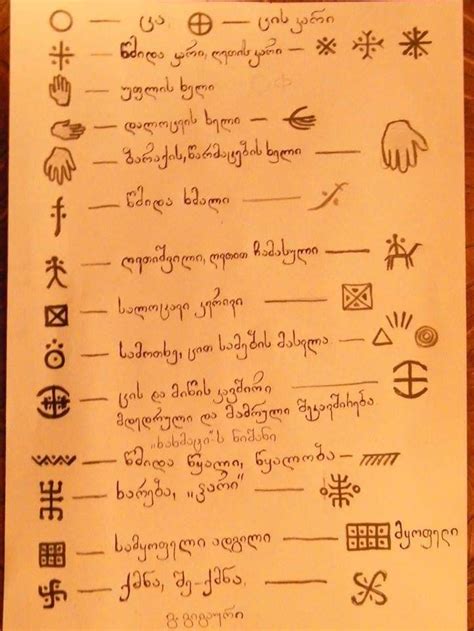 ცა — ცის კარი
წმიდა კარი, ღვთის კარი
უფლის ხელი
დალოცვის ხელი
ბარაქის, წარმატების ხელი
წმიდა ხმალი
ღვთიშვილი, ღვთით ჩამოსული
სალოცავი კერივი
სამოთხე, ცით სამების მოსვლა
ცის და მიწის კავშირი
მდედრული და მამრული შეკავშირება
„ხახმატი"-ს ნიშანი
წმიდა წყალი, წყალობა
ხარება, „ჯარი"
სამყოფელი ადგილი — მყოფელი
ქმნა, შე-ქმნა.
გ. გიგაური